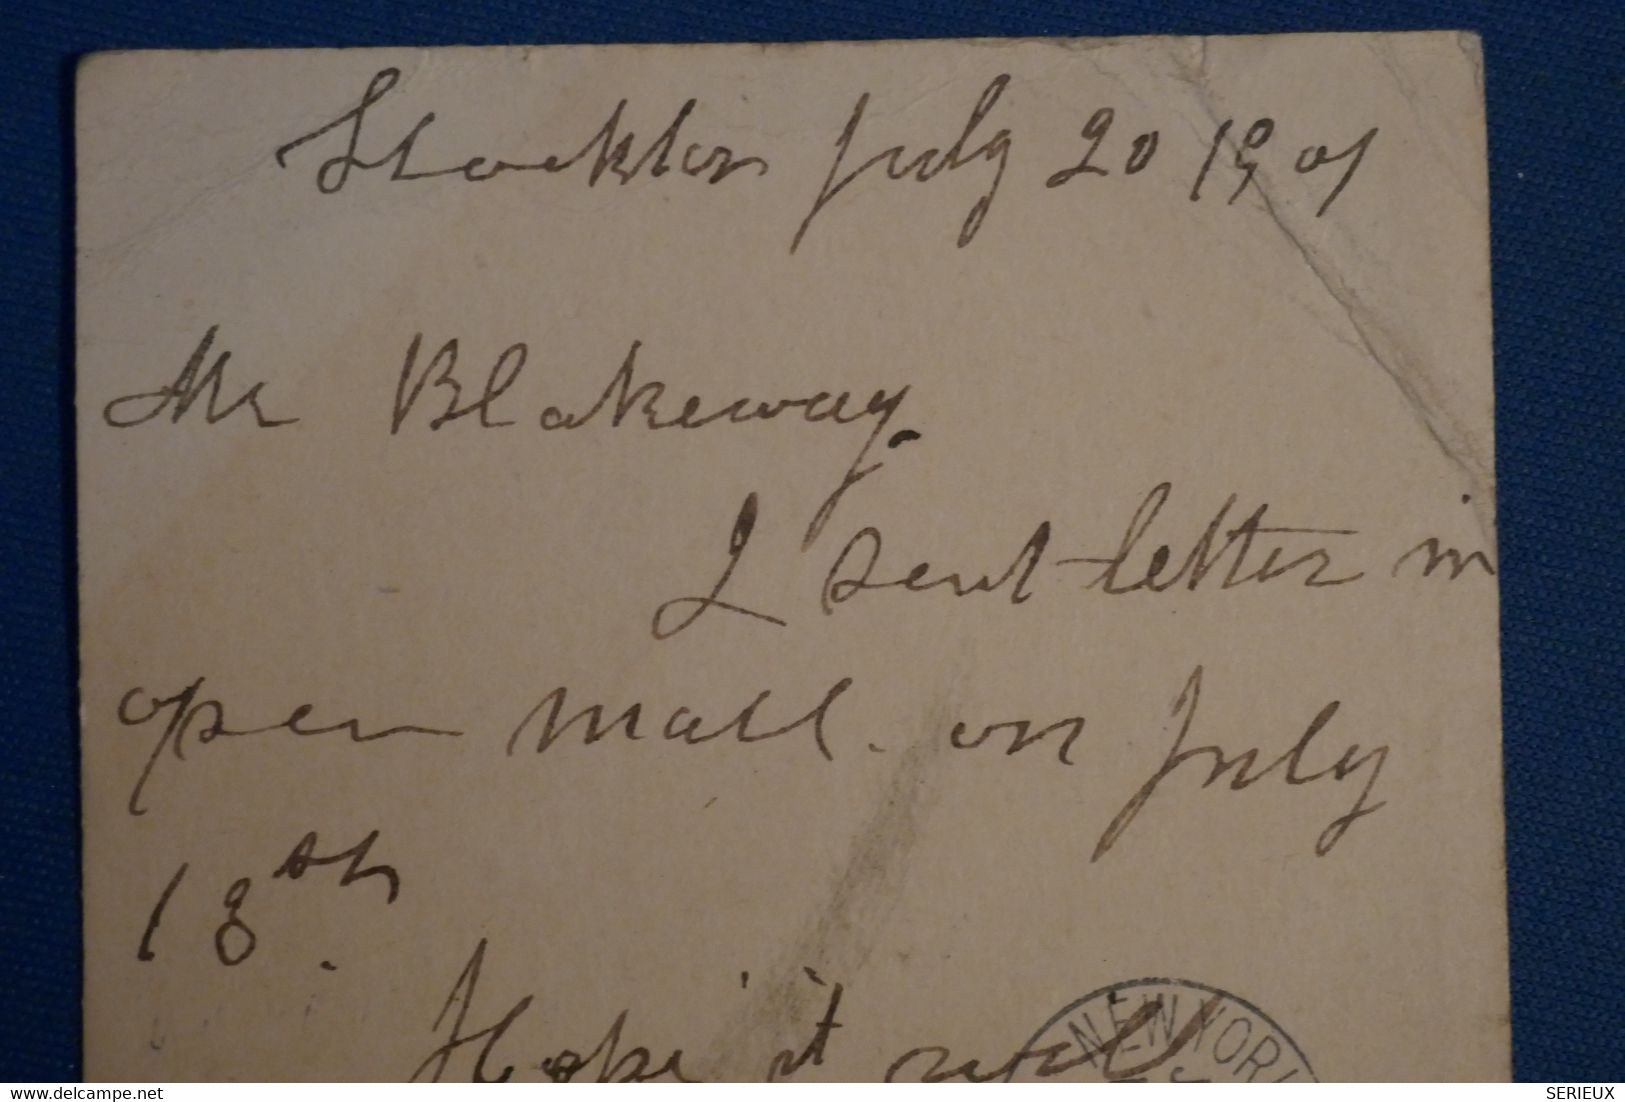 Stockton July 20 1901
Mr Blakeway.
I sent letter in
open mail. on July
18th.
Hope it will
NEW YORK
www.delcampe.net
SERIEUX